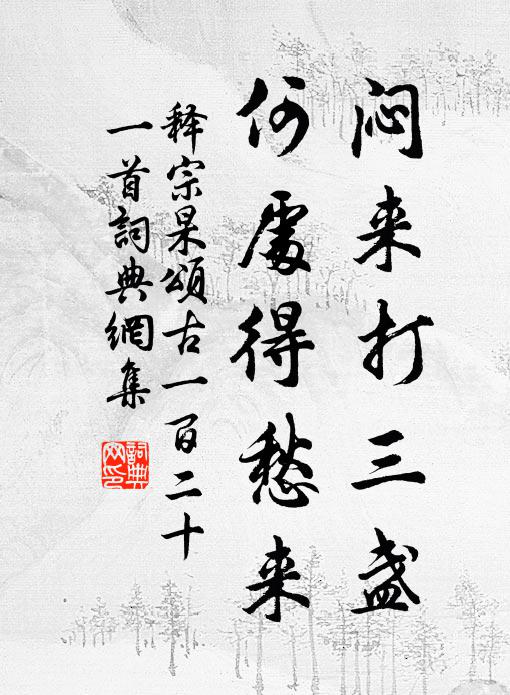 闷来打三盏
何處得愁来
释宗杲颂古一百二十
一首詞典網集
詞典
网印